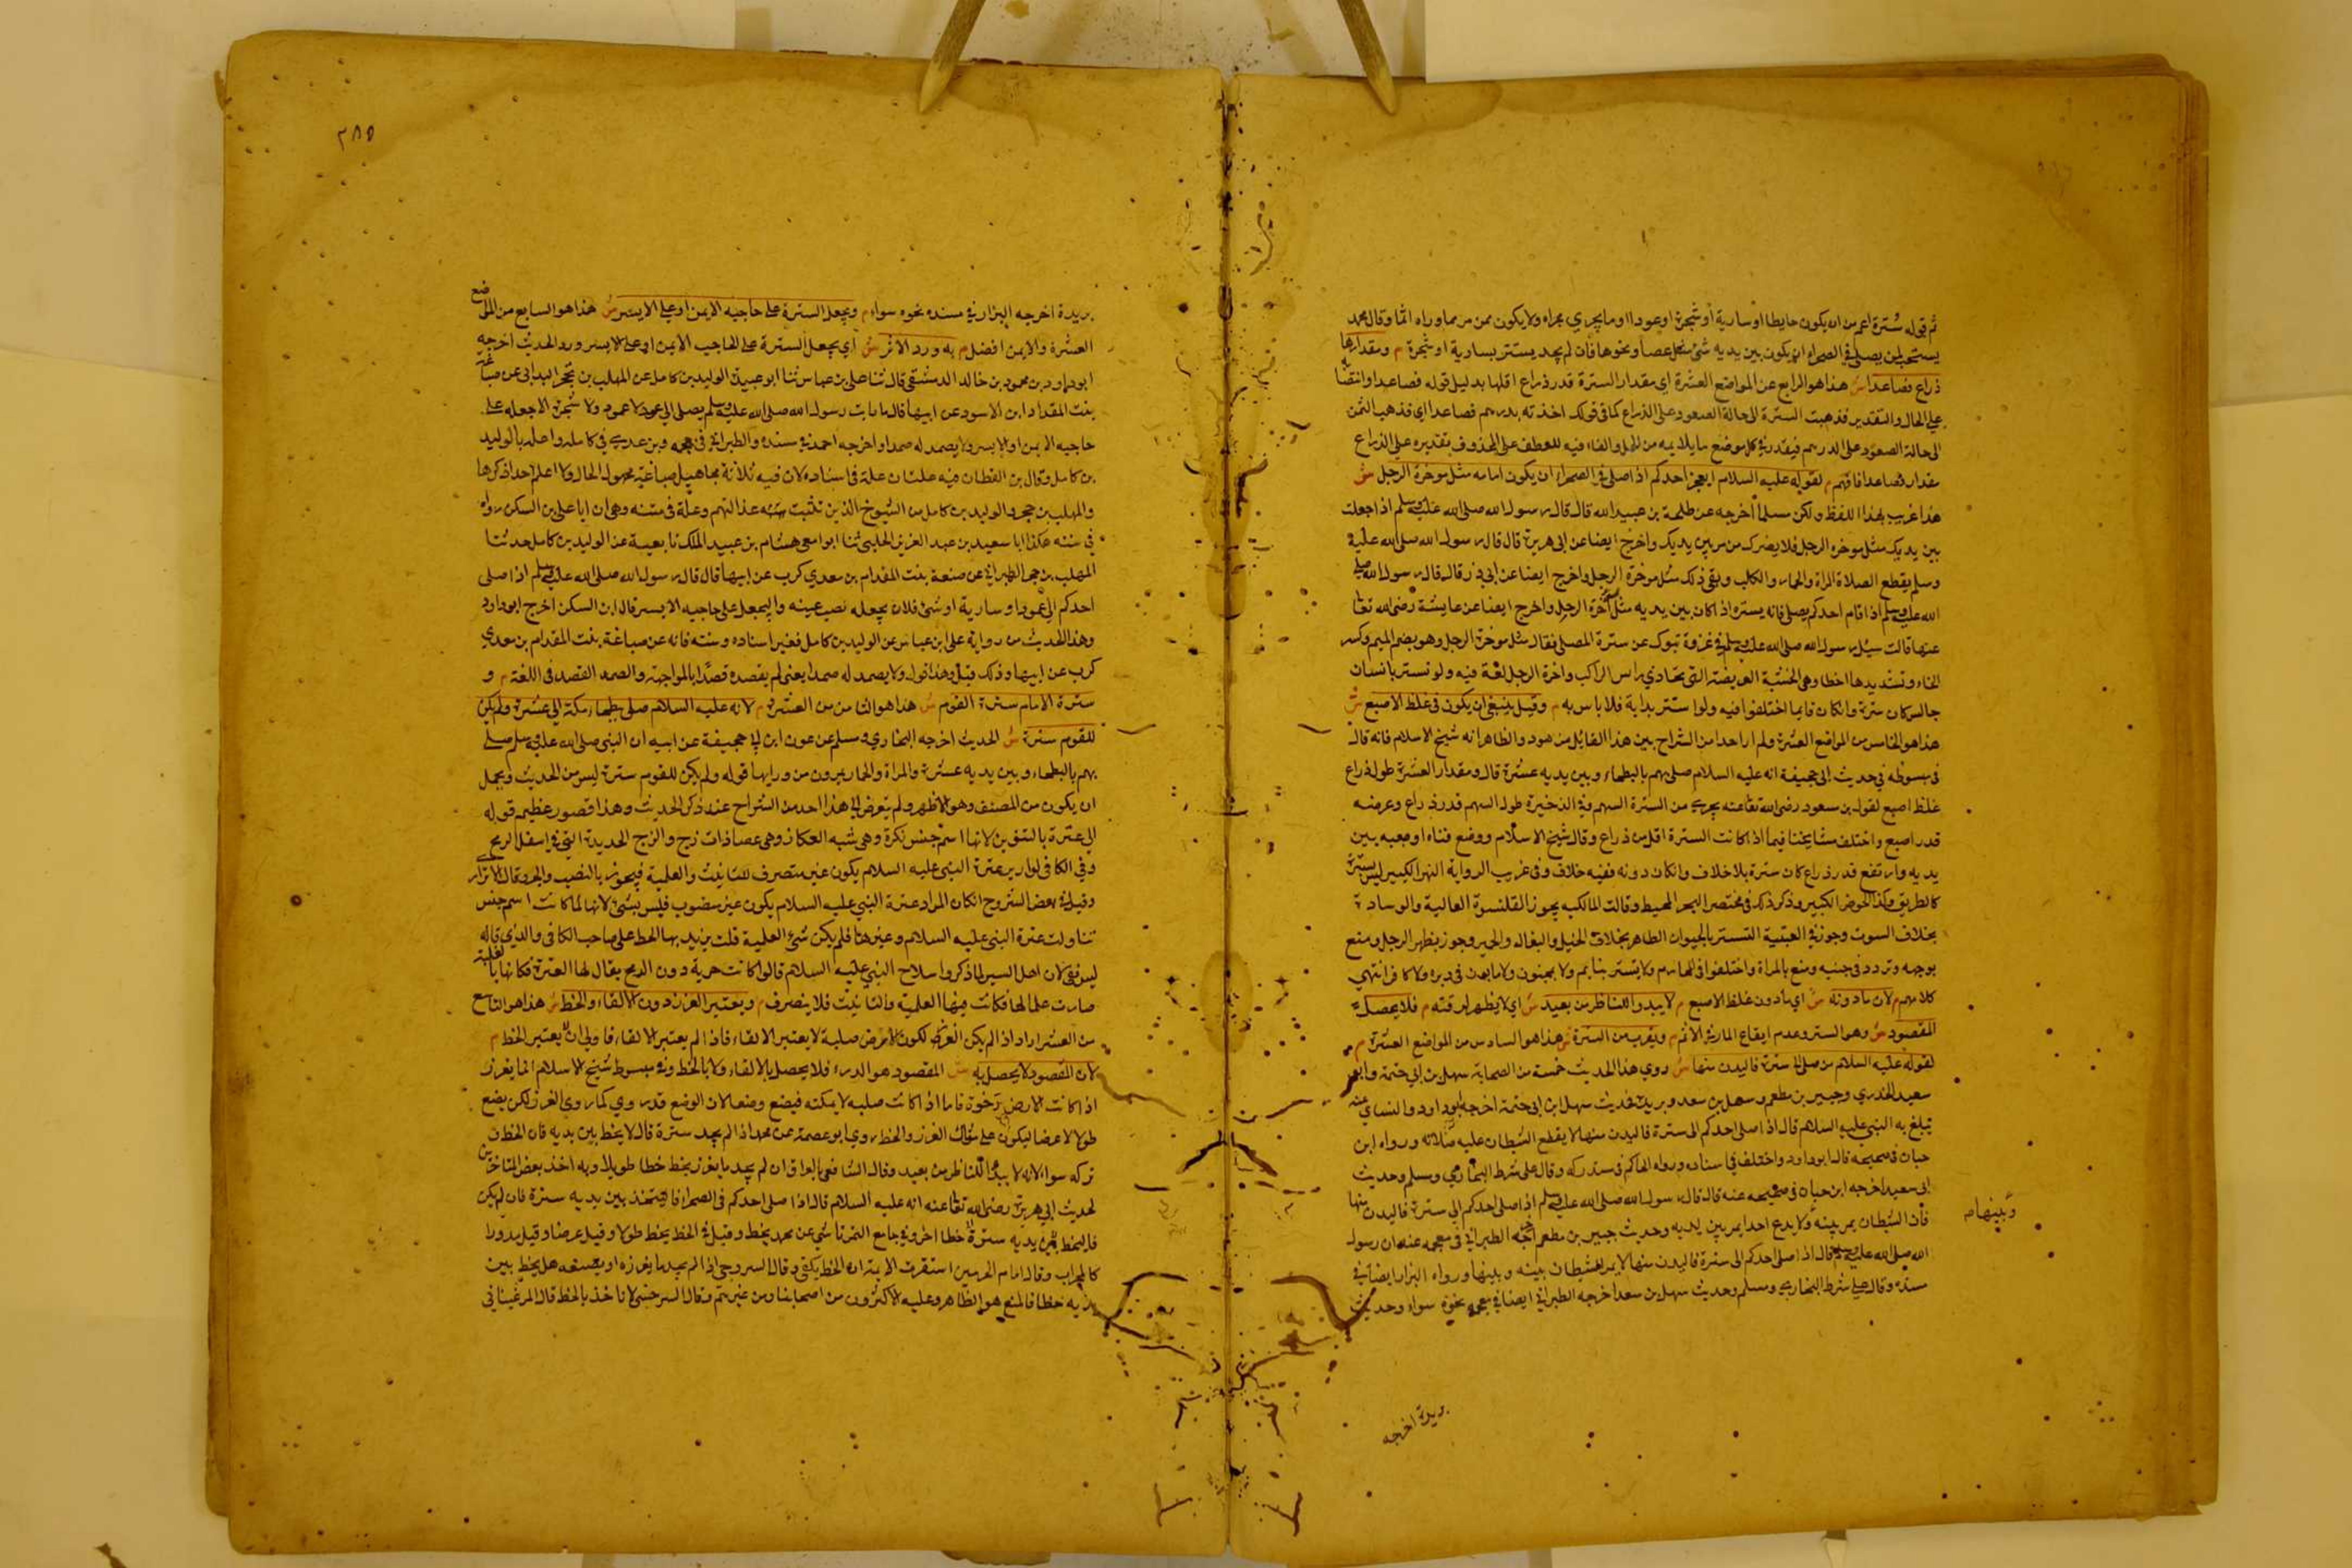 ثم قوله سترة اعم من ان يكون حايطا او سارية او شجرة او عودا او ما يجري مجراه ولا يكون ممن مر مما وراه اثما وقال محمد
يستحب لمن يصلي في الصحراء ان يكون بين يديه شئ مثل عصا ونحوها فان لم يجد يستتر بسارية او شجرة م ومقدارها
ذراع فصاعدا ش هذا هو الرابع عن المواضع العشرة اي مقدار السترة قدر ذراع اقلها بدليل قوله فصاعدا وانتصابه
على الحال والتقدير فذهبت السترة الى حالة الصعود وعلى الذراع كما في قولك اخذته بدرهم فصاعدا اي فذهب الثمن
الى حالة الصعود على الدرهم فيقدر في كل موضع ما يلايمه من والفاء فيه للعطف على المحذوف بتقديره على الذراع
مقدار فصاعدا فافهم م لقوله عليه السلام ايعجز احدكم اذا صلى في الصحراء ان يكون امامه مثل موخرة الرحل ش
هذا غريب بهذا اللفظ ولكن مسلما اخرجه عن طلحة بن عبيد الله قال قال رسول الله صلى الله عليه وسلم اذا جعلت
بين يديك مثل موخره الرحل فلا يضرك من مر بين يديك واخرج ايضا عن ابي هريرة قال قال رسول الله صلى الله عليه
وسلم يقطع الصلاة المراة والحمار والكلب وبقى ذلك مثل موخرة الرحل واخرج ايضا عن ابي ذر قال قال رسول الله صلى
الله عليه وسلم اذا قام احدكم يصلي فانه يستره اذا كان بين يديه مثل آخرة الرحل واخرج ايضا عن عايشة رضى الله تعا
عنها قالت سئل رسول الله صلى الله عليه وسلم في غزوة تبوك عن سترة المصلي فقال مثل موخرة الرحل وهو بضم الميم وكسر
الخاء وتشديدها خطا وهي الخشبة العريضة التي تحاذي راس الراكب واخرة الرحل لغة فيه ولو تستر بانسان
جالس كان سترة وان كان قايما اختلفوا فيه ولو استتر بدابة فلا باس به م وقيل ينبغي ان يكون في غلظ الاصبع ش
هذا هو الخامس من المواضع العشرة ولم ار احدا من الشراح بين هذا القايل من هو د والظاهر انه شيخ الاسلام فانه قال
في مبسوطه في حديث ابي جحيفة انه عليه السلام صلى بهم بالبطحاء وبين يديه عنزة قال ومقدار العنزة طول ذراع
غلظ اصبع لقول بن مسعود رضى الله تعا عنه يجزي من السترة السهم وفي الذخيرة طول السهم قدر ذراع وعرضه
قدر اصبع واختلف مشايخنا فيما اذا كانت السترة اقل من ذراع وقال شيخ الاسلام ووضع قناه او جعبه بين
يديه وارتفع قدر ذراع كان سترة بلا خلاف وان كان دونه ففيه خلاف وفي غريب الرواية النهر الكبير ليس بسترة
كالطريق وكذا الحوض الكبير وذكر ذلك في مختصر البحر المحيط وقالت المالكيه يجوز القلنسوة العالية والوسادة
بخلاف السوط وجوز في العتبية التستر بالحيوان الطاهر بخلاف الخيل والبغال والحمير وجوز بظهر الرجل ومنع
بوجهه وتردد في جنبه ومنع بالمراة واختلفوا في المحارم ولا يستتر بنايم ولا بمجنون ولا مابون في دبره ولا كافر انتهى
كلامهم م لان ما دونه ش اي ما دون غلظ الاصبع م لا يبدوا للناظر من بعيد ش اي لا يظهر له رقته م فلا يحصل
المقصود ش وهو الستر وعدم ايقاع المار في الاثم م ويقرب من السترة ش هذا هو السادس من المواضع العشرة م
لقوله عليه السلام من صلى الى سترة فاليدن منها ش روي هذا الحديث خمسة من الصحابة سهل بن ابي حثمة وابو
سعيد الخدري وجبير بن مطعم وسهل بن سعد وبريدة فحديث سهل بن ابي حثمة اخرجه ابو داود والنساي عنه
يبلغ به النبي عليه السلام قال اذا صلى احدكم الى سترة فاليدن منها لا يقطع الشيطان عليه صلاته ورواه ابن
حبان في صحيحه قال ابو داود واختلف في اسناده ورواه الحاكم في مستدركه وقال على شرط البخاري ومسلم وحديث
ابي سعيد اخرجه ابن حبان في صحيحه عنه قال قال رسول الله صلى الله عليه وسلم اذا صلى احدكم الى سترة فاليدن منها
فان الشيطان يمر بينه ولا يدع احدا يمر بين يديه وحديث جبير بن مطعم اخرجه الطبراني في معجمه عنه ان رسول
وبينها صح
الله صلى الله عليه وسلم قال اذا صلى احدكم الى سترة فاليدن منها لا يمر الشيطان بينه وبينها ورواه البزار ايضا في
مسنده وقال على شرط البخاري ومسلم وحديث سهل بن سعد اخرجه الطبراني ايضا في معجمه نحوه سواء وحديث
بريدة اخرجه
٢٨٥
بريدة اخرجه البزار في مسنده نحوه سواء م ويجعل السترة على حاجبه الايمن او على الايسر ش هذا هو السابع من المواضع
العشرة والايمن افضل م به ورد الاثر ش اي يجعل السترة على الحاجب الايمن او على الايسر ورد الحديث اخرجه
ابو داود بن محمود بن خالد الدمشقي قال ثنا على بن عياس ثنا ابو عبيدة الوليد بن كامل عن المهلب بن حجر البداني عن ضباعة
بنت المقداد ابن الاسود عن ابيها قال ما رايت رسول الله صلى الله عليه وسلم يصلى الى عود ولا عمود ولا شجرة الا جعله على
حاجبه الايمن او الايسر ولا يصمد له صمدا واخرجه احمد في مسنده والطبراني في معجمه وبن عدي في كامله واعله بالوليد
بن كامل وقال بن القطان فيه علتان علة في اسناده لان فيه ثلاثة مجاهيل ضباعة مجهولة الحال ولا اعلم احدا ذكرها
والمهلب بن حجر والوليد بن كامل من الشيوخ الذين تثبت عدالتهم وعلة في متنه وهي ان ابا على بن السكن رواه
في سننه هكذا ابا سعيد بن عبد العزيز الحلبي ثنا ابو امعى هشام بن عبيد الملك نا بعيسة عن الوليد بن كامل حدثنا
المهلب بن حجر الطبراني عن ضبعة بنت المقدام بن معدي كرب عن ابيها قال قال رسول الله صلى الله عليه وسلم اذا صلى
احدكم الى عمود او سارية او شئ فلا يجعله نصب عينه وليجعل على حاجبه الايسر قال ابن السكن اخرج ابو داود
وهذا الحديث من رواية على ابن عباس عن الوليد بن كامل فغير اسناده ومتنه فانه عن ضباغة بنت المقدام بن معدي
كرب عن ابيها وذلك فعل وهذا قول ولا يصمد له صمدا يعنى لم يقصده قصدا بالمواجهة والصمد القصد في اللغة م و
سترة الامام سترة القوم ش هذا هو الثامن من العشرة م لانه عليه السلام صلى ببطحاء مكة الى عنزة ولم يكن
للقوم سترة ش الحديث اخرجه البخاري ومسلم عن عون ابن ابي جحيفة عن ابيه ان النبي صلى الله عليه وسلم صلى
بهم بالبطحاء وبين يديه عنزة والمراة والحمار يمرون من ورايها قوله ولم يكن للقوم سترة ليس من الحديث ويحمل
ان يكون من المصنف وهو الاظهر ولم يتعرض الى هذا احد من الشراح عند ذكر الحديث وهذا قصور عظيم قوله
الى عنزة بالتنوين لانها اسم جنس نكرة وهي شبه العكاز وهى عصا ذات زج والزج الحديدة التي في اسفل الرمح
وفي الكافي لو اريد عنزة النبي عليه السلام يكون غير منصرف للتانيث والعلمية فيجوز بالنصب والجر وقال الاترازي
وقيل في بعض الشروح ان كان المراد عنزة النبي عليه السلام يكون غير منصوب فليس بشئ لانها لما كانت اسم جنس
تناولت عنزة النبي عليه السلام وغيرها فلم يكن شئ العلمية قلت يريد بها الحط على صاحب الكافي والذي قاله
ليس نفى لان اهل السير لما ذكروا سلاح النبي عليه السلام قالوا كانت حربة دون الرمح يقال لها العنزة فكانها بالغلبة
صارت علما لها فكانت فيها العلمية والتانيث فلا ينصرف م ويعتبر الغرز دون الالقاء والخط ش هذا هو التاسع
من العشر اراد اذا لم يكن الغرز لكون الارض صلبة لا يعتبر الالقاء فاذا لم يعتبر الالقاء فاولى ان لا يعتبر الخط م
لان المقصود لا يحصل به ش المقصود هو الدرء فلا يحصل بالالقاء ولا بالخط وفي مبسوط شيخ الاسلام انما يغرز
اذا كانت الارض رخوة فاما اذا كانت صلبه لا يمكنه فيضع وضعا لان الوضع قد روي كما روي الغرز لكن يضع
طولا لا عرضا ليكون على مثال الغرز والخط روي ابو عصمة عن محمد اذا لم يجد سترة قال لا يخط بين يديه فان الخط و
تركه سواء لانه لا يبدوا للناظر من بعيد وقال الشافعي بالعراق ان لم يجد ما يغرز يخط خطا طويلا وبه اخذ بعض المتاخرين
لحديث ابي هريرة رضى الله تعا عنه انه عليه السلام قال اذا صلى احدكم في الصحراء فاليتخذ بين يديه سترة فان لم يكن
فاليخط بين يديه سترة خطا اخر وفي جامع التمرتاشي عن محمد يخط وقيل في الخط يخط طولا وقيل عرضا وقيل مدورا
كالمحراب وقال امام الحرمين استقرت الايمة ان الخط يكفي وقال السروجي اذا لم يجد ما يغرزه او يضعه هل يخط بين
يديه خطا فالمنع هو الظاهر وعليه الاكثرون من اصحابنا ومن غيرهم وقال السرخسي لا ناخذ بالخط قال المرغيناني